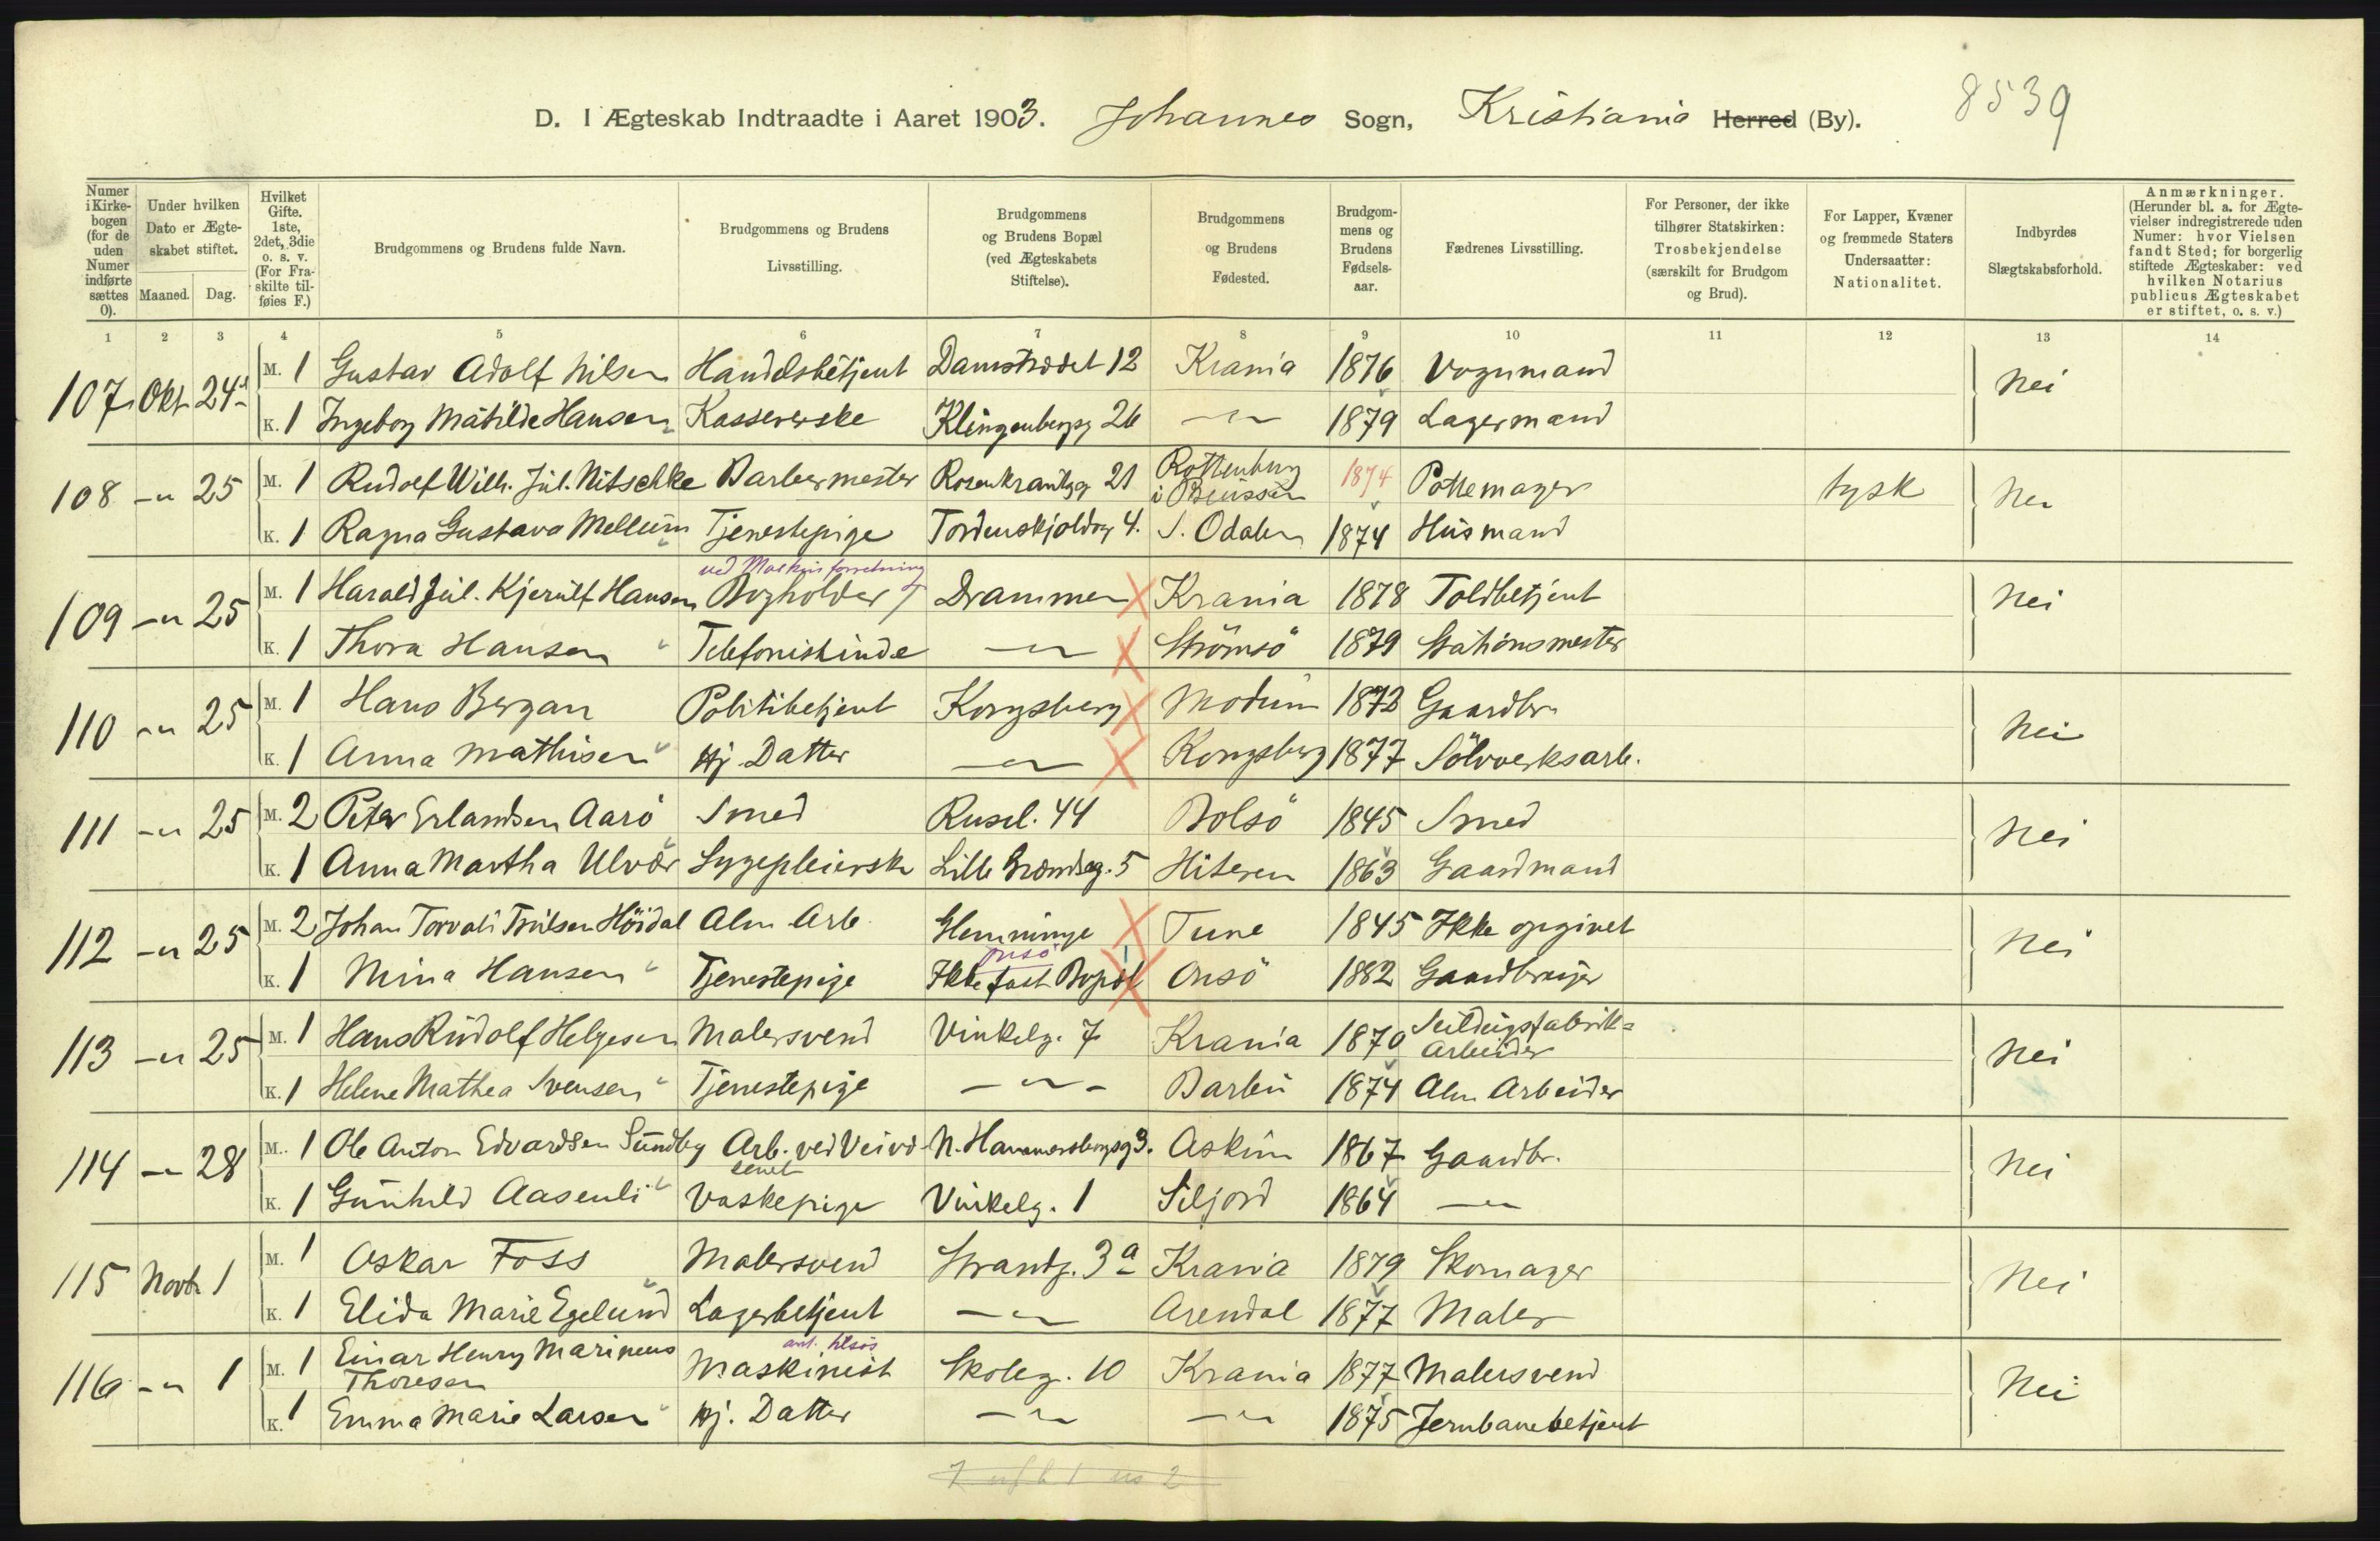 8539
D. I Ægteskab Indtraadte i Aaret 1903. Johannes Sogn, Kristiania Herred (By).
Numer i Kirkebogen (for de uden Numer indførte sættes 0).
Under hvilken Dato er Ægteskabet stiftet.
Maaned. Dag.
Hvilket Gifte. 1ste, 2det, 3die o. s. v. (For Fraskilte tilføies F.)
Brudgommens og Brudens fulde Navn.
Brudgommens og Brudens Livsstilling.
Brudgommens og Brudens Bopæl (ved Ægteskabets Stiftelse).
Brudgommens og Brudens Fødested.
Brudgommens og Brudens Fødselsaar.
Fædrenes Livsstilling.
For Personer, der ikke tilhører Statskirken: Trosbekjendelse (særskilt for Brudgom og Brud).
For Lapper, Kvæner og fremmede Staters Undersaatter: Nationalitet.
Indbyrdes Slægtskabsforhold.
Anmærkninger. (Herunder bl. a. for Ægtevielser indregistrerede uden Numer: hvor Vielsen fandt Sted; for borgerlig stiftede Ægteskaber: ved hvilken Notarius publicus Ægteskabet er stiftet, o. s. v.)
1 2 3 4 5 6 7 8 9 10 11 12 13 14
107 Okt 24 M. 1 Gustav Adolf Nilsen Handelsbetjent Damstrædet 12 Krania 1876 Vognmand Nei
K. 1 Ingeborg Mathilde Hansen Kassererske Klingenbergg 26 —"— 1879 Lagermand
108 —"— 25 M. 1 Rudolf Wilh. Jul. Nitschke Barbermester Rosenkrantzg 21 Rottenburg i Preussen 1874 Pottemager tysk Nei
K. 1 Ragna Gustava Mellum Tjenestepige Tordenskjoldsg 4. S. Odalen 1874 Husmand
ved Maskinforretning
109 —"— 25 M. 1 Harald Jul. Kjerulf Hansen Bogholder Drammen Krania 1878 Toldbetjent Nei
K. 1 Thora Hansen Telefonistinde —"— Strömsö 1879 Stationsmester
110 —"— 25 M. 1 Hans Bergan Politibetjent Kongsberg Modum 1872 Gaardbr. Nei
K. 1 Anna Mathisen Hj. Datter —"— Kongsberg 1877 Sölvverksarb.
111 —"— 25 M. 2 Peter Erlandsen Aarö Smed Rusel. 44 Bolsö 1845 Smed Nei
K. 1 Anna Martha Ulvær Sygepleierske Lille Grændseg. 5 Hiteren 1863 Gaardmand
112 —"— 25 M. 2 Johan Torvald Höidal Alm Arb. Glemminge Tune 1845 Ikke opgivet Nei
Onsö
K. 1 Mina Hansen Tjenestepige Ikke fast Bopæl Onsö 1882 Gaardbruger
113 —"— 25 M. 1 Hans Rudolf Helgesen Malersvend Vinkelg. 7 Krania 1870 Seildugsfabrik= Arbeider Nei
K. 1 Helene Mathea Svensen Tjenestepige —"— Barbu 1874 Alm Arbeider
114 —"— 28 M. 1 Ole Anton Edvardsen Sundby Arb. ved Veivæsenet N. Hammersborgg 3. Askim 1867 Gaardbr. Nei
K. 1 Gunhild Aasenli Vaskepige Vinkelg. 1 Siljord 1864 —"—
115 Novbr 1 M. 1 Oskar Foss Malersvend Strandg. 3a Krania 1879 Skomager Nei
K. 1 Elida Marie Egelund Lagerbetjent —"— Arendal 1877 Maler
116 —"— 1 M. 1 Einar Henry Marinius Thoresen Maskinist Skoleg. 10 Krania 1877 Malersvend Nei
K. 1 Emma Marie Larsen Hj. Datter —"— —"— 1875 Jernbanebetjent